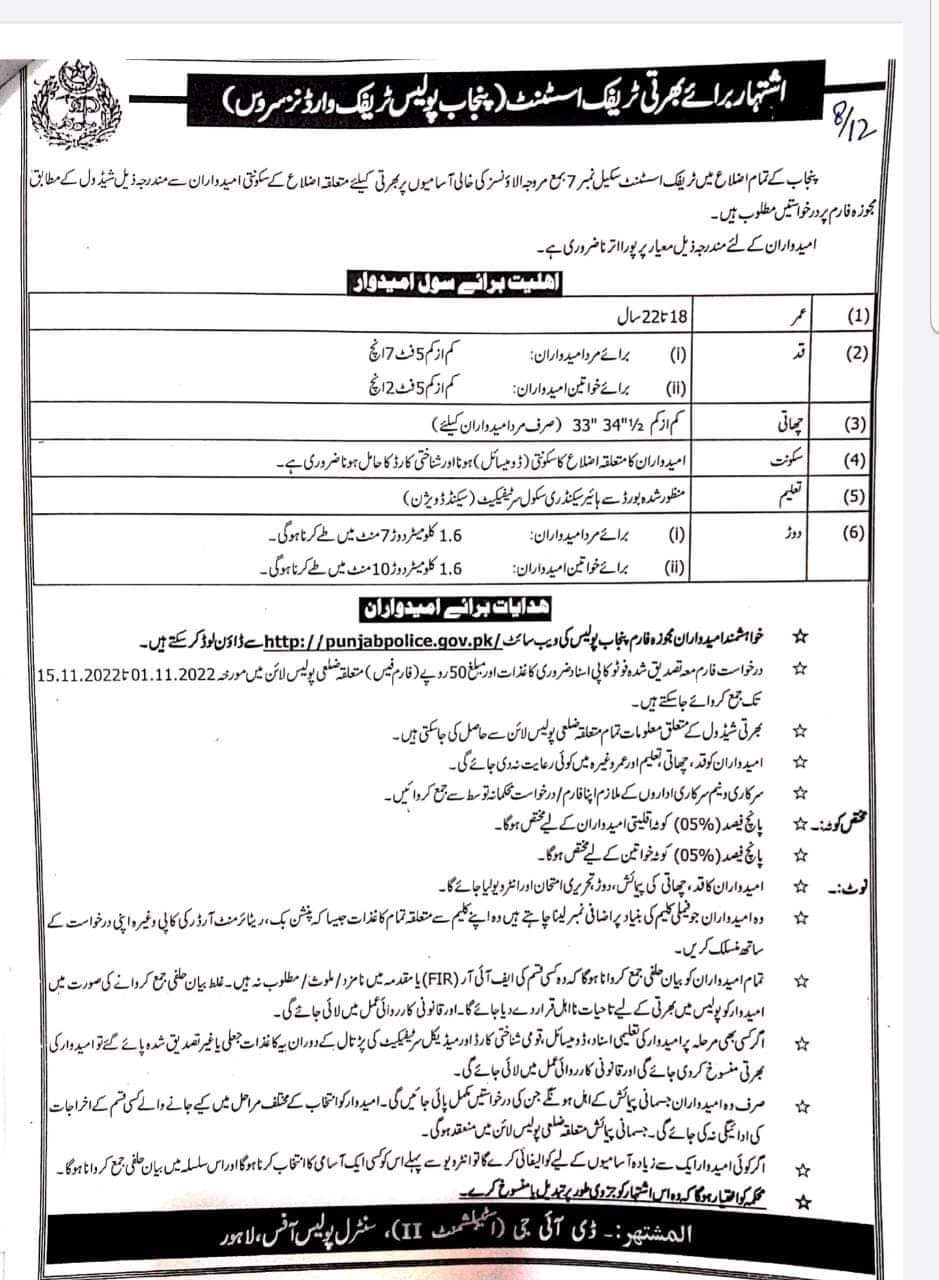 اشتہار برائے بھرتی ٹریفک اسسٹنٹ (پنجاب پولیس ٹریفک وارڈنز سروس)
8/12
پنجاب کے تمام اضلاع میں ٹریفک اسسٹنٹ سکیل نمبر 7 بمع مروجہ الاؤنسز کی خالی آسامیوں پر بھرتی کیلئے متعلقہ اضلاع کے سکونتی امیدواران سے مندرجہ ذیل شیڈول کے مطابق
مجوزہ فارم پر درخواستیں مطلوب ہیں۔
امیدواران کے لئے مندرجہ ذیل معیار پر پورا اترنا ضروری ہے۔
اھلیت برائے سول امیدوار
(1) عمر 18 تا 22 سال
(2) قد (i) برائے مرد امیدواران: کم از کم 5 فٹ 7 انچ
(ii) برائے خواتین امیدواران: کم از کم 5 فٹ 2 انچ
(3) چھاتی کم از کم 33" 34"½ (صرف مرد امیدواران کیلئے)
(4) سکونت امیدواران کا متعلقہ اضلاع کا سکونتی (ڈومیسائل) ہونا اور شناختی کارڈ کا حامل ہونا ضروری ہے۔
(5) تعلیم منظور شدہ بورڈ سے ہائیر سکینڈری سکول سرٹیفکیٹ (سیکنڈ ڈویژن)
(6) دوڑ (i) برائے مرد امیدواران: 1.6 کلومیٹر دوڑ 7 منٹ میں طے کرنا ہوگی۔
(ii) برائے خواتین امیدواران: 1.6 کلومیٹر دوڑ 10 منٹ میں طے کرنا ہوگی۔
ھدایات برائے امیدواران
☆ خواہشمند امیدواران مجوزہ فارم پنجاب پولیس کی ویب سائٹ http://punjabpolice.gov.pk/ سے ڈاؤن لوڈ کر سکتے ہیں۔
☆ درخواست فارم معہ تصدیق شدہ فوٹو کاپی اسناد ضروری کاغذات اور مبلغ 50 روپے (فارم فیس) متعلقہ ضلعی پولیس لائن میں مورخہ 01.11.2022 تا 15.11.2022
تک جمع کروائے جا سکتے ہیں۔
☆ بھرتی شیڈول کے متعلق معلومات تمام متعلقہ ضلعی پولیس لائن سے حاصل کی جا سکتی ہیں۔
☆ امیدواران کو قد، چھاتی، تعلیم اور عمر وغیرہ میں کوئی رعایت نہ دی جائے گی۔
☆ سرکاری و نیم سرکاری اداروں کے ملازم اپنا فارم/درخواست محکمانہ توسط سے جمع کروائیں۔
مختص کوٹہ:۔ ☆ پانچ فیصد (05%) کوٹہ اقلیتی امیدواران کے لیے مختص ہوگا۔
☆ پانچ فیصد (05%) کوٹہ خواتین کے لیے مختص ہوگا۔
نوٹ:۔ ☆ امیدواران کا قد، چھاتی کی پیمائش، دوڑ، تحریری امتحان اور انٹرویو لیا جائے گا۔
☆ وہ امیدواران جو فیملی کلیم کی بنیاد پر اضافی نمبر لینا چاہتے ہیں وہ اپنے کلیم سے متعلقہ تمام کاغذات جیسا کہ پنشن بک، ریٹائرمنٹ آرڈر کی کاپی وغیرہ اپنی درخواست کے
ساتھ منسلک کریں۔
☆ تمام امیدواران کو بیان حلفی جمع کروانا ہوگا کہ وہ کسی قسم کی ایف آئی آر (FIR) یا مقدمہ میں نامزد/ملوث/مطلوب نہ ہیں۔ غلط بیان حلفی جمع کروانے کی صورت میں
امیدوار کو پولیس میں بھرتی کے لیے تاحیات نااہل قرار دے دیا جائے گا۔ اور قانونی کارروائی عمل میں لائی جائے گی۔
☆ اگر کسی بھی مرحلہ پر امیدوار کی تعلیمی اسناد، ڈومیسائل، قومی شناختی کارڈ اور میڈیکل سرٹیفکیٹ کی پڑتال کے دوران یہ کاغذات جعلی یا غیر تصدیق شدہ پائے گئے تو امیدوار کی
بھرتی منسوخ کر دی جائے گی اور قانونی کارروائی عمل میں لائی جائے گی۔
☆ صرف وہ امیدواران جسمانی پیمائش کے اہل ہونگے جن کی درخواستیں مکمل پائی جائیں گی۔ امیدوار کو انتخاب کے مختلف مراحل میں کیے جانے والے کسی قسم کے اخراجات
کی ادائیگی نہ کی جائے گی۔ جسمانی پیمائش متعلقہ ضلعی پولیس لائن میں منعقد ہوگی۔
☆ اگر کوئی امیدوار ایک سے زیادہ آسامیوں کے لیے کوالیفائی کرے گا تو انٹرویو سے پہلے اس کو کسی ایک آسامی کا انتخاب کرنا ہوگا اور اس سلسلہ میں بیان حلفی جمع کروانا ہوگا۔
☆ محکمہ کو اختیار ہوگا کہ وہ اس اشتہار کو جزوی طور پر تبدیل یا منسوخ کرے۔
المشتھر:۔ ڈی آئی جی (اسٹیبلشمنٹ II)، سنٹرل پولیس آفس، لاہور